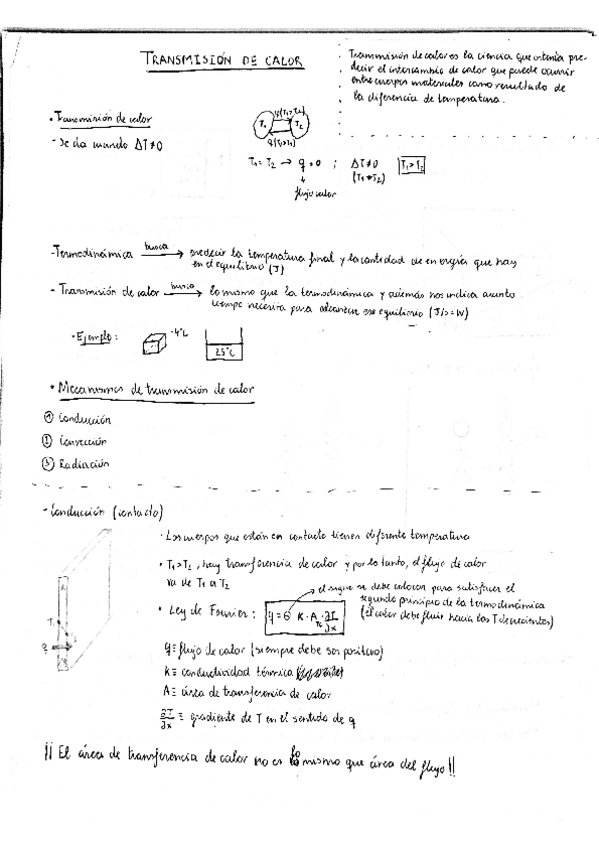 TRANSMISIÓN DE CALOR
Transmisión de calor es la ciencia que intenta pre-
decir el intercambio de calor que puede ocurrir
entre cuerpos materiales como resultado de
la diferencia de temperatura.
• Transmisión de calor
- Se da cuando ΔT≠0
q(T₁>T₂)
T₁ T₂
T₁=T₂ → q=0 ; ΔT≠0 T₁>T₂
(T₁≠T₂)
flujo calor
- Termodinámica busca → predecir la temperatura final y la cantidad de energía que hay
en el equilibrio (J)
- Transmisión de calor busca → lo mismo que la termodinámica y además nos indica cuanto
tiempo necesita para alcanzar ese equilibrio (J/s=W)
· Ejemplo: -4°C
25°C
• Mecanismos de transmisión de calor
① Conducción
② Convección
③ Radiación
- Conducción (contacto)
· Los cuerpos que están en contacto tienen diferente temperatura
• T₁>T₂, hay transferencia de calor y por lo tanto, el flujo de calor
va de T₁ a T₂
→ el signo se debe colocar para satisfacer el
segundo principio de la termodinámica
(el calor debe fluir hacia las T decrecientes)
• Ley de Fourier:
q≡ flujo de calor (siempre debe ser positivo)
K≡ conductividad térmica
A≡ área de transferencia de calor
∂T/∂x ≡ gradiente de T en el sentido de q
¡¡ El área de transferencia de calor no es lo mismo que área del flujo!!